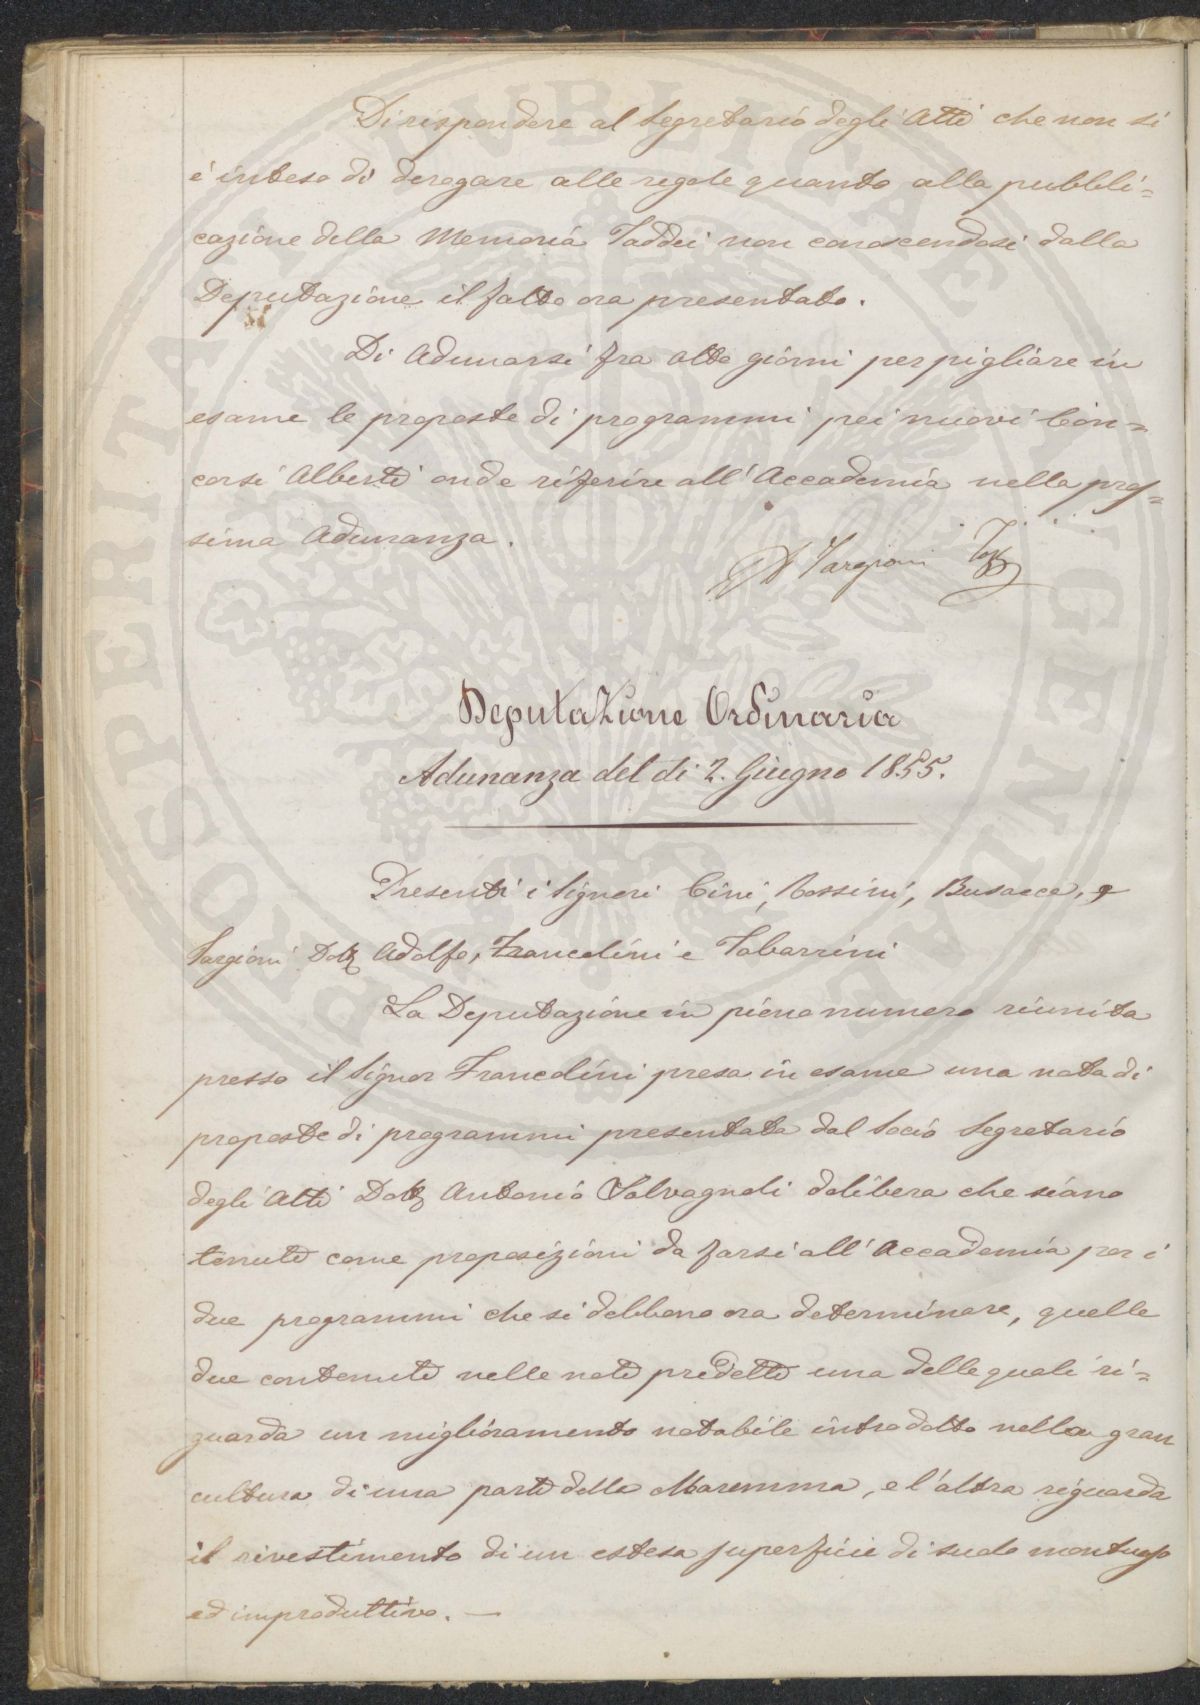 Di rispondere al Segretario degli Atti che non si
è inteso di derogare alle regole quanto alla pubbli=
cazione della Memoria Taddei non conoscendosi dalla
Deputazione il fatto ora presentato.
Di Adunarsi fra otto giorni per pigliare in
esame le proposte di programmi pei nuovi Con=
corsi Alberti onde riferire all'Accademia nella pros=
sima Adunanza.
Targioni Tozz
Deputazione Ordinaria
Adunanza del di 2. Giugno 1855.
Presenti i Signori Cini, Rossini, Busacca, e
Targioni Dott Adolfo, Francolini e Tabarrini
La Deputazione in pieno numero riunita
presso il Signor Francolini presa in esame una nota di
proposte di programmi presentata dal Socio Segretario
degli Atti Dott Antonio Salvagnoli delibera che siano
tenute come proposizioni da farsi all'Accademia per i
due programmi che si debbono ora determinare, quelle
due contenute nelle note predette una delle quali ri=
guarda un miglioramento notabile introdotto nella gran
cultura di una parte della Maremma, e l'altra riguarda
il rivestimento di un estesa superficie di suolo montuoso
ed improduttivo. —
PROSPERITATI PVBLICAE AVGENDAE